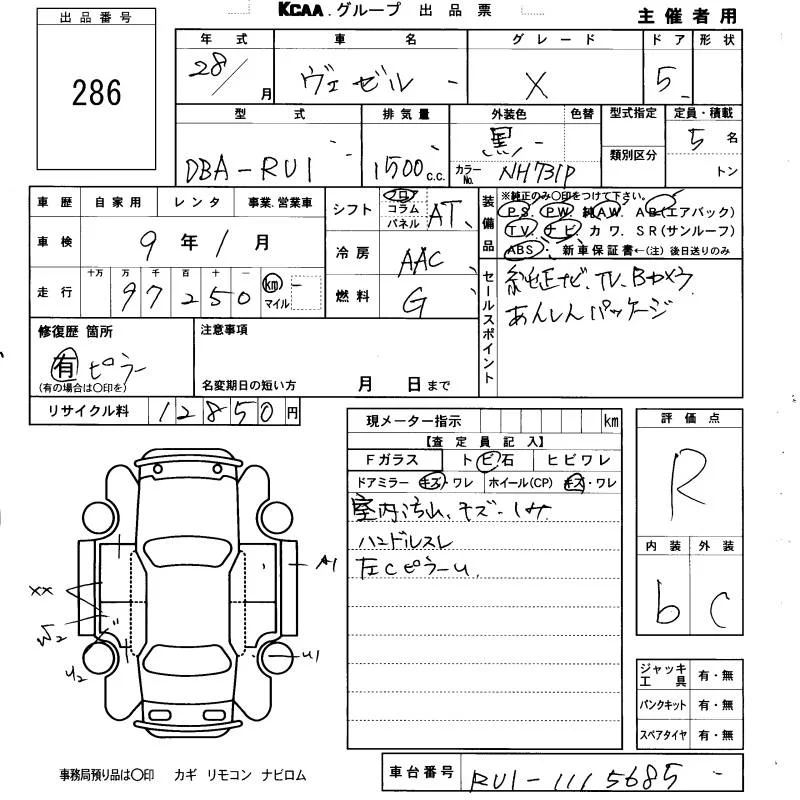 KCAA.グループ 出品票
主催者用
出品番号
286
年式 車名 グレード ドア 形状
28/ 月 ヴェゼル X 5
型式 排気量 外装色 色替 型式指定 定員・積載
DBA-RU1 1500 c.c. 黒 類別区分 5 名
カラーNo. NH731P トン
車歴 自家用 レンタ 事業.営業車
車検 9年1月
走行 十万 万 千 百 十 一
97250 km マイル
シフト フロア コラム パネル AT
冷房 AAC
燃料 G
装備品 ※純正のみ〇印をつけて下さい。
PS. PW. 純AW. AB(エアバック)
TV. ナビ カワ. SR(サンルーフ)
ABS 新車保証書←(注)後日送りのみ
セールスポイント
純正ナビ、TV、Bカメラ
あんしんパッケージ
修復歴 箇所
有 ピラー
(有の場合は〇印を)
注意事項
名変期日の短い方 月 日まで
リサイクル料 12850円
現メーター指示 km
【査定員記入】
Fガラス トビ石 ヒビワレ
ドアミラー キズ・ワレ ホイール(CP) キズ・ワレ
室内汚れ、キズ・シミ
ハンドルスレ
左Cピラーu.
評価点
R
内装 外装
b c
XX
W2
U2
A1
U1
ジャッキ工具 有・無
パンクキット 有・無
スペアタイヤ 有・無
事務局預り品は〇印 カギ リモコン ナビロム
車台番号 RU1-1115685